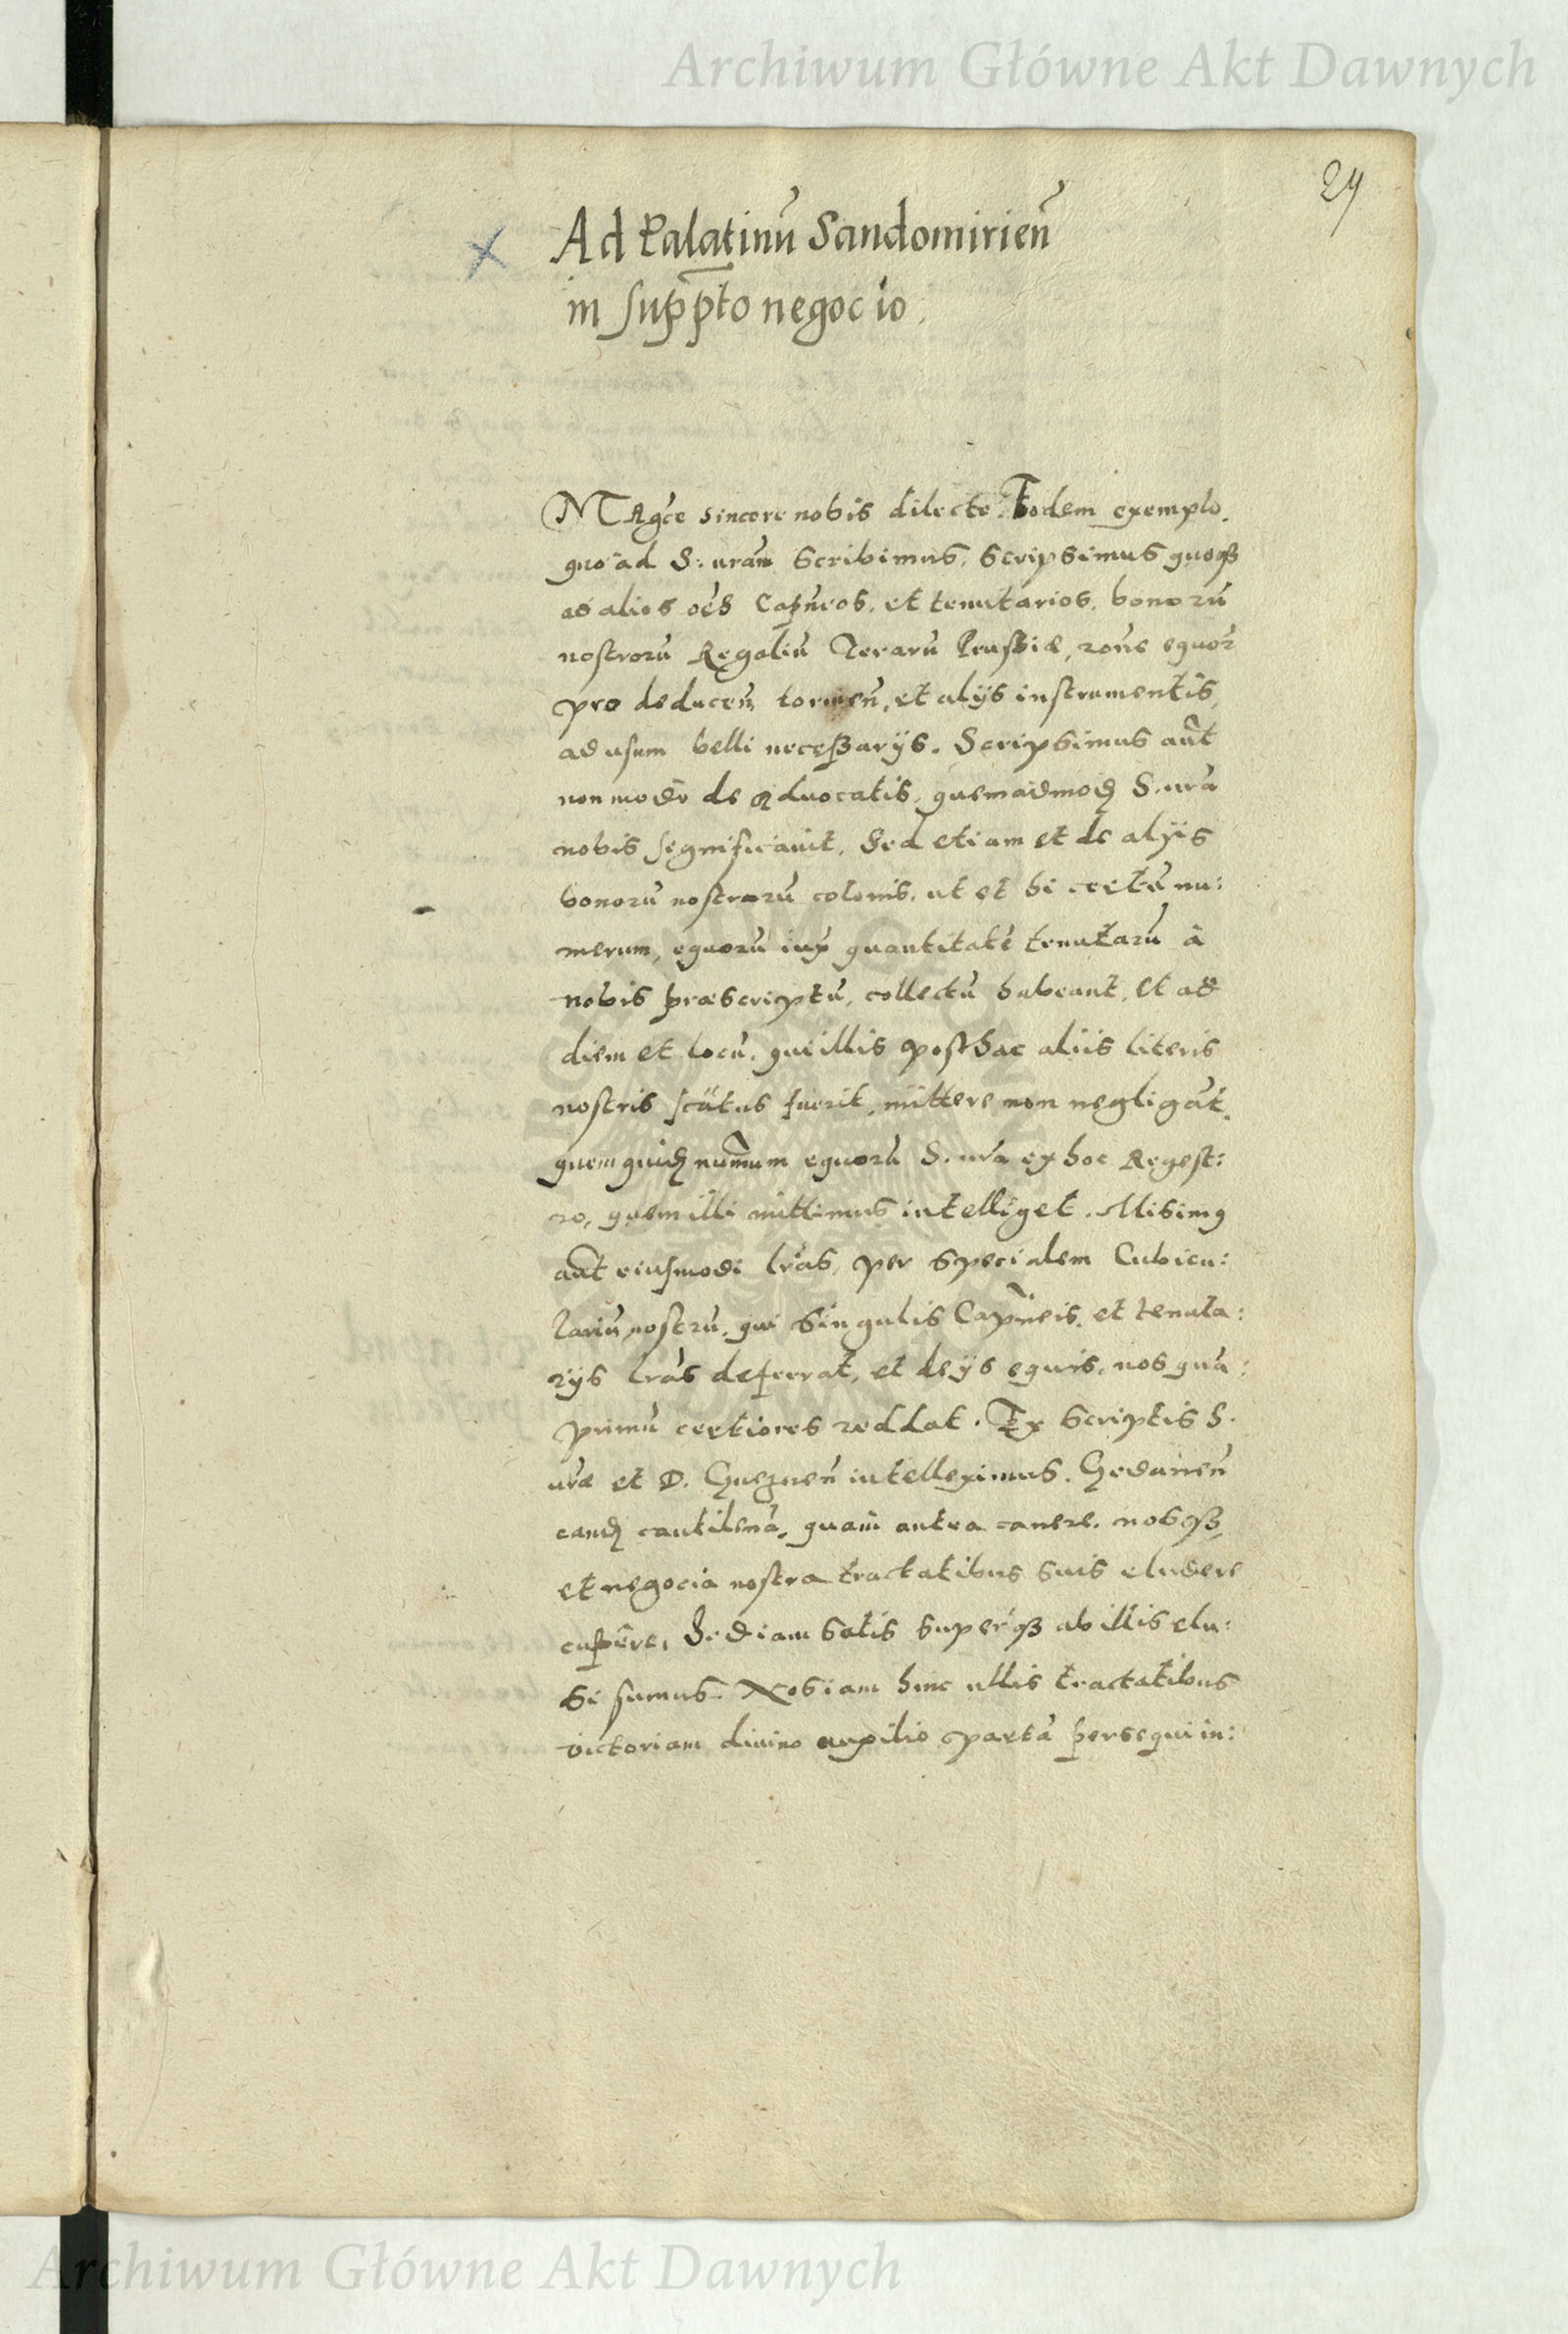 Archiwum Główne Akt Dawnych
29
Ad Palatinū Sandomirien̄
in sup̄p̄to negocio.
MAgc̄e sincere nobis dilecte. Eodem exemplo,
quo ad S: vram̄ Scribimus, Scripsimus quoqȝ
ad alios oēs Capn̄eos, et tenutarios, bonorū
nostrorū Regaliū Terarū Prussiæ, rōne equor
pro deducen̄ tormen̄, et alijs instrumentis,
ad usum belli necessarijs. Scripsimus aūt
non modo de Aduocatis, quemadmodȝ S. vrā
nobis segnificauit, Sed etiam et de alijs
bonorū nostrorū colonis, ut et hi certū nu:
merum, equorū iuxᵃ quantitatē tenutarū â
nobis præscriptū, collectū habeant, et ad
diem et locū, qui illis posthac aliis literis
nostris sc̄itus fuerit, mittere non negligāt,
quem quidȝ num̄um equorū S. vrā ex hoc Regest:
ro, quem illi mittimus intelliget. Misimꝰ
aūt eiusmodi lrās, per specialem Cubicu:
lariū nostrū, qui Singulis Capn̄eis, et tenuta:
rijs lrās deferrat, et de ijs equis, nos quā:
primū certiores reddat. Ex Scriptis S.
vræ et D. Gneznen̄ intelleximus, Gedanen̄
eandȝ cantilenā, quam̄ antea canere, nosqȝ,
et negocia nostra tractatibus suis eludere
cup̄ere, Sed iam satis superqȝ ab illis elu:
si sumus. Nos iam hinc ullis tractatibus
victoriam diuino auxilio partā persequi in:
Archiwum Główne Akt Dawnych